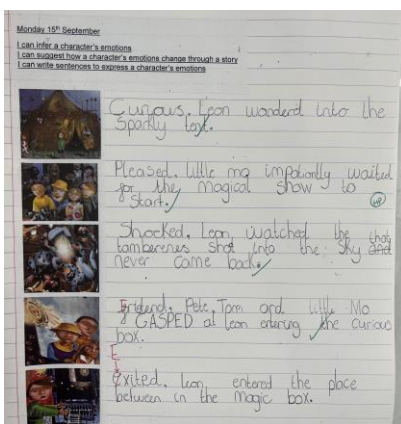 Monday 15th September
I can infer a character's emotions
I can suggest how a character's emotions change through a story
I can write sentences to express a character's emotions
Curious. Leon wonderd into the
Sparkly tent.
Pleased. little mo impatiantly waited
for the magical show to
start.
Shocked. Leon watched the
tamberenes shot into the sky and
never came back.
Pete, Tom and little Mo
GASPED at Leon entering the curious
box.
Exited. Leon entered the place
between in the magic box.